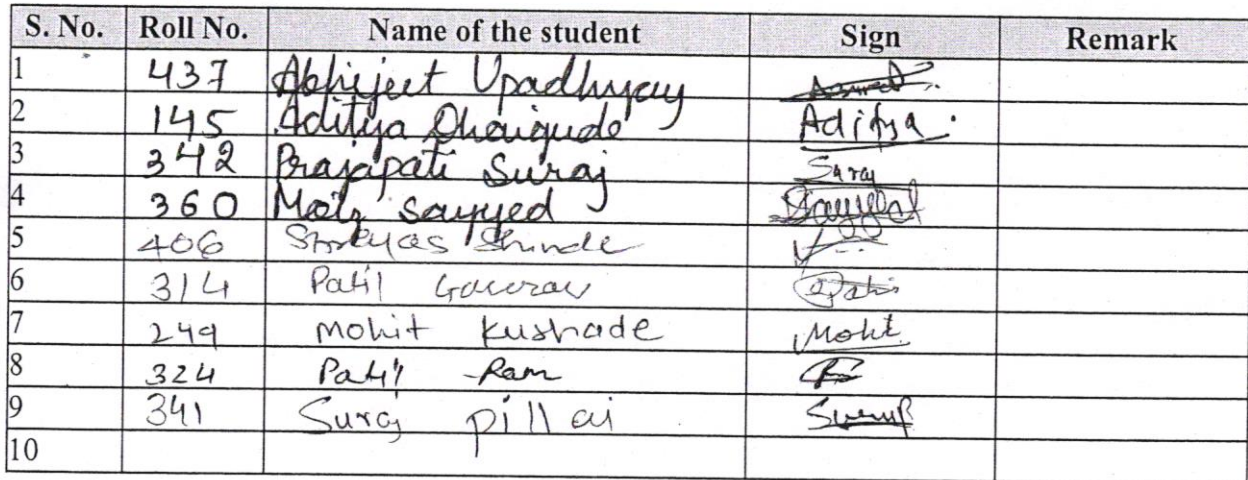 S. No. Roll No. Name of the student Sign Remark
1 437 Abhijeet Upadhyay
2 145 Aditya Dhaigude Aditya.
3 342 Prajapati Suraj Suraj
4 360 Moiz Sayyed Sayyed
5 406 Shreyas Shinde
6 314 Patil Gaurav Patil
7 249 Mohit Kushade Mohit
8 324 Patil Ram
9 341 Suraj pillai
10